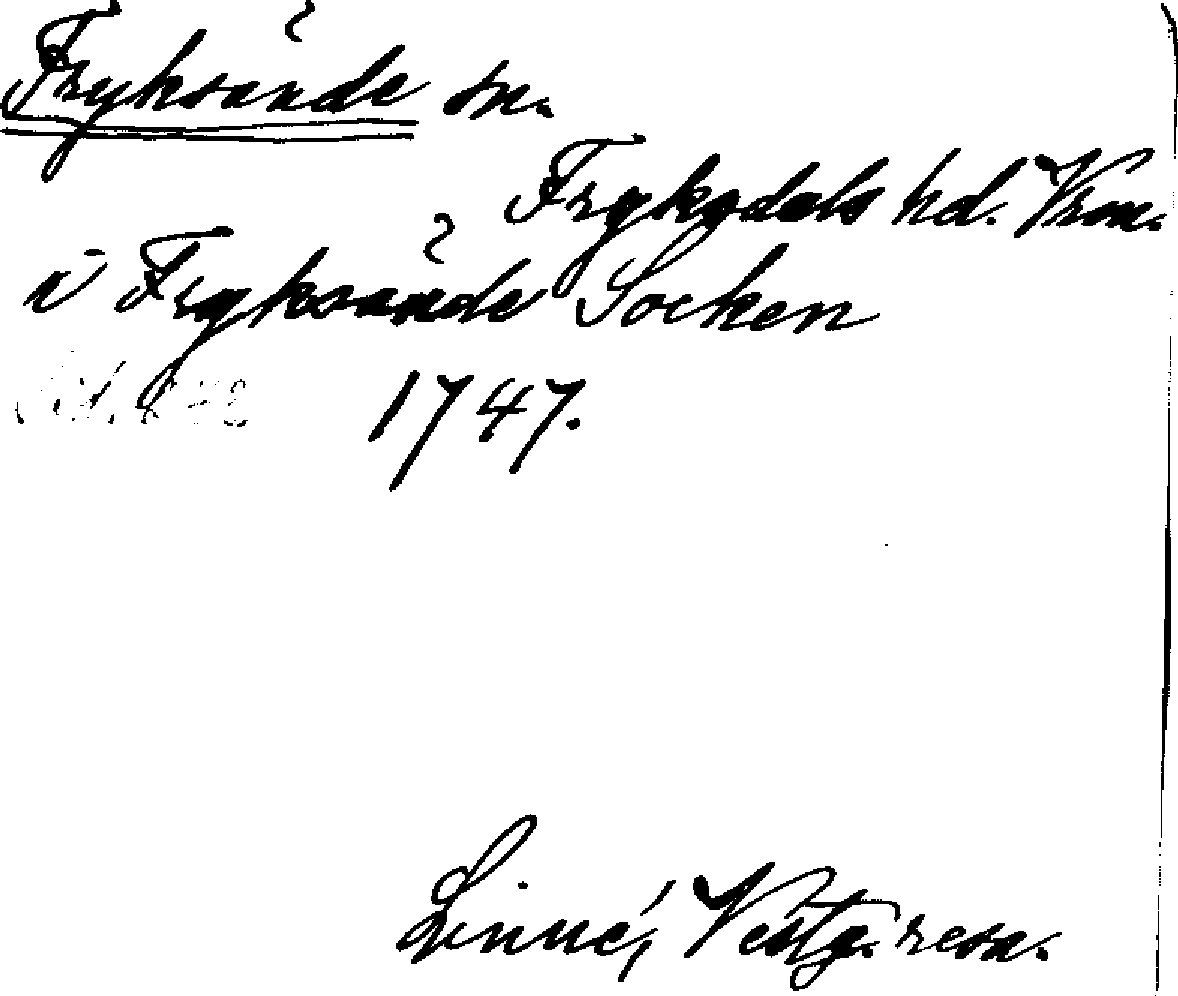 Fryksände sn.
Fryksdals hd. Vrm.
i Fryksände Socken
1747.
Linné, Västg. resa.